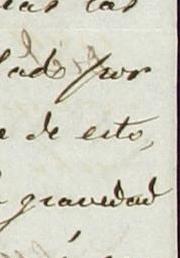 las
lado por
e de esto,
gravedad